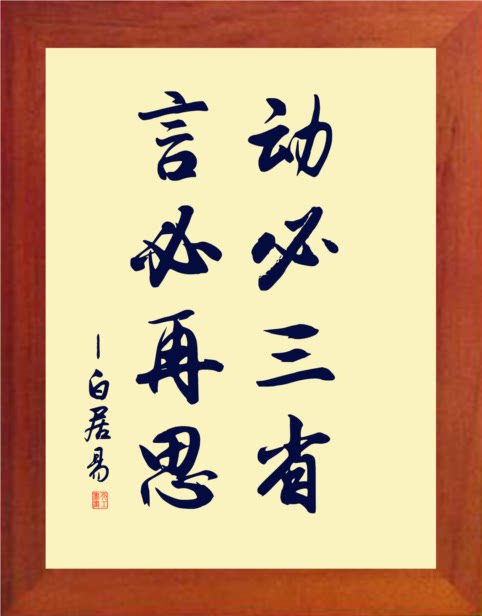 动必三省
言必再思
—白居易